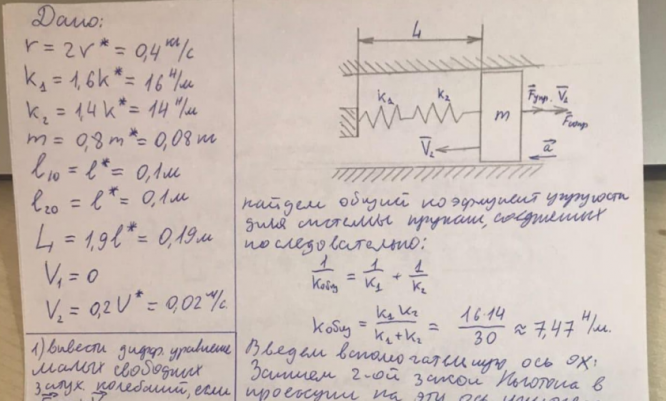 Дано:
r = 2r* = 0,4 кг/с
k₁ = 1,6k* = 16 Н/м
k₂ = 1,4k* = 14 Н/м
m = 0,8m* = 0,08 кг
l₁₀ = l* = 0,1м
l₂₀ = l* = 0,1м
L = 1,9l* = 0,19м
V₁ = 0
V₂ = 0,2V* = 0,02 м/с
1) вывести диффр. уравнение
малых свободных
затух. колебаний, если
L
k₁ k₂
m
F⃗упр. V⃗₁
F⃗сопр
V⃗₂
a⃗
найдем общий коэффициент упругости
для системы пружин, соединенных
последовательно:
1/kобщ = 1/k₁ + 1/k₂
kобщ = k₁k₂/k₁+k₂ = 16·14/30 ≈ 7,47 Н/м.
Введем вспомогательную ось OX:
Запишем 2-ой закон Ньютона в
проекции на эту ось